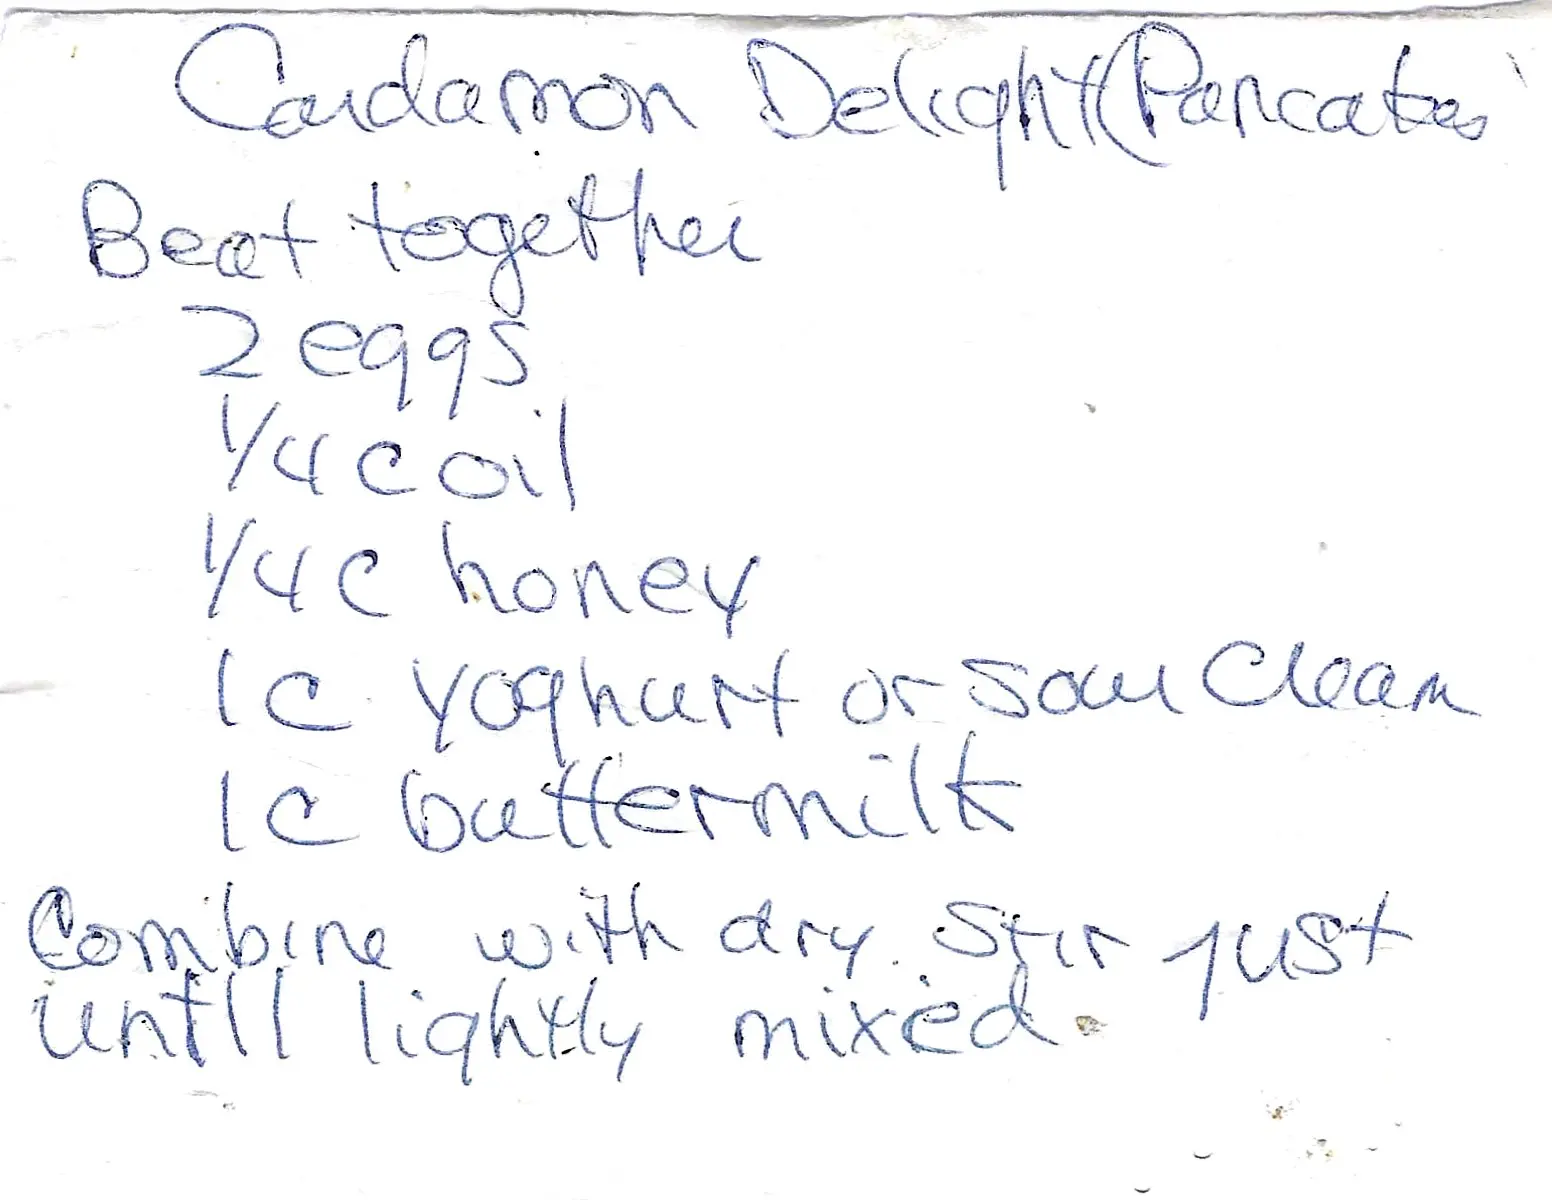 Cardamon Delight (Pancakes
Beat together
2 eggs
1/4 c oil
1/4 c honey
1 c yoghurt or sour cream
1 c buttermilk
Combine with dry. Stir just
until lightly mixed.